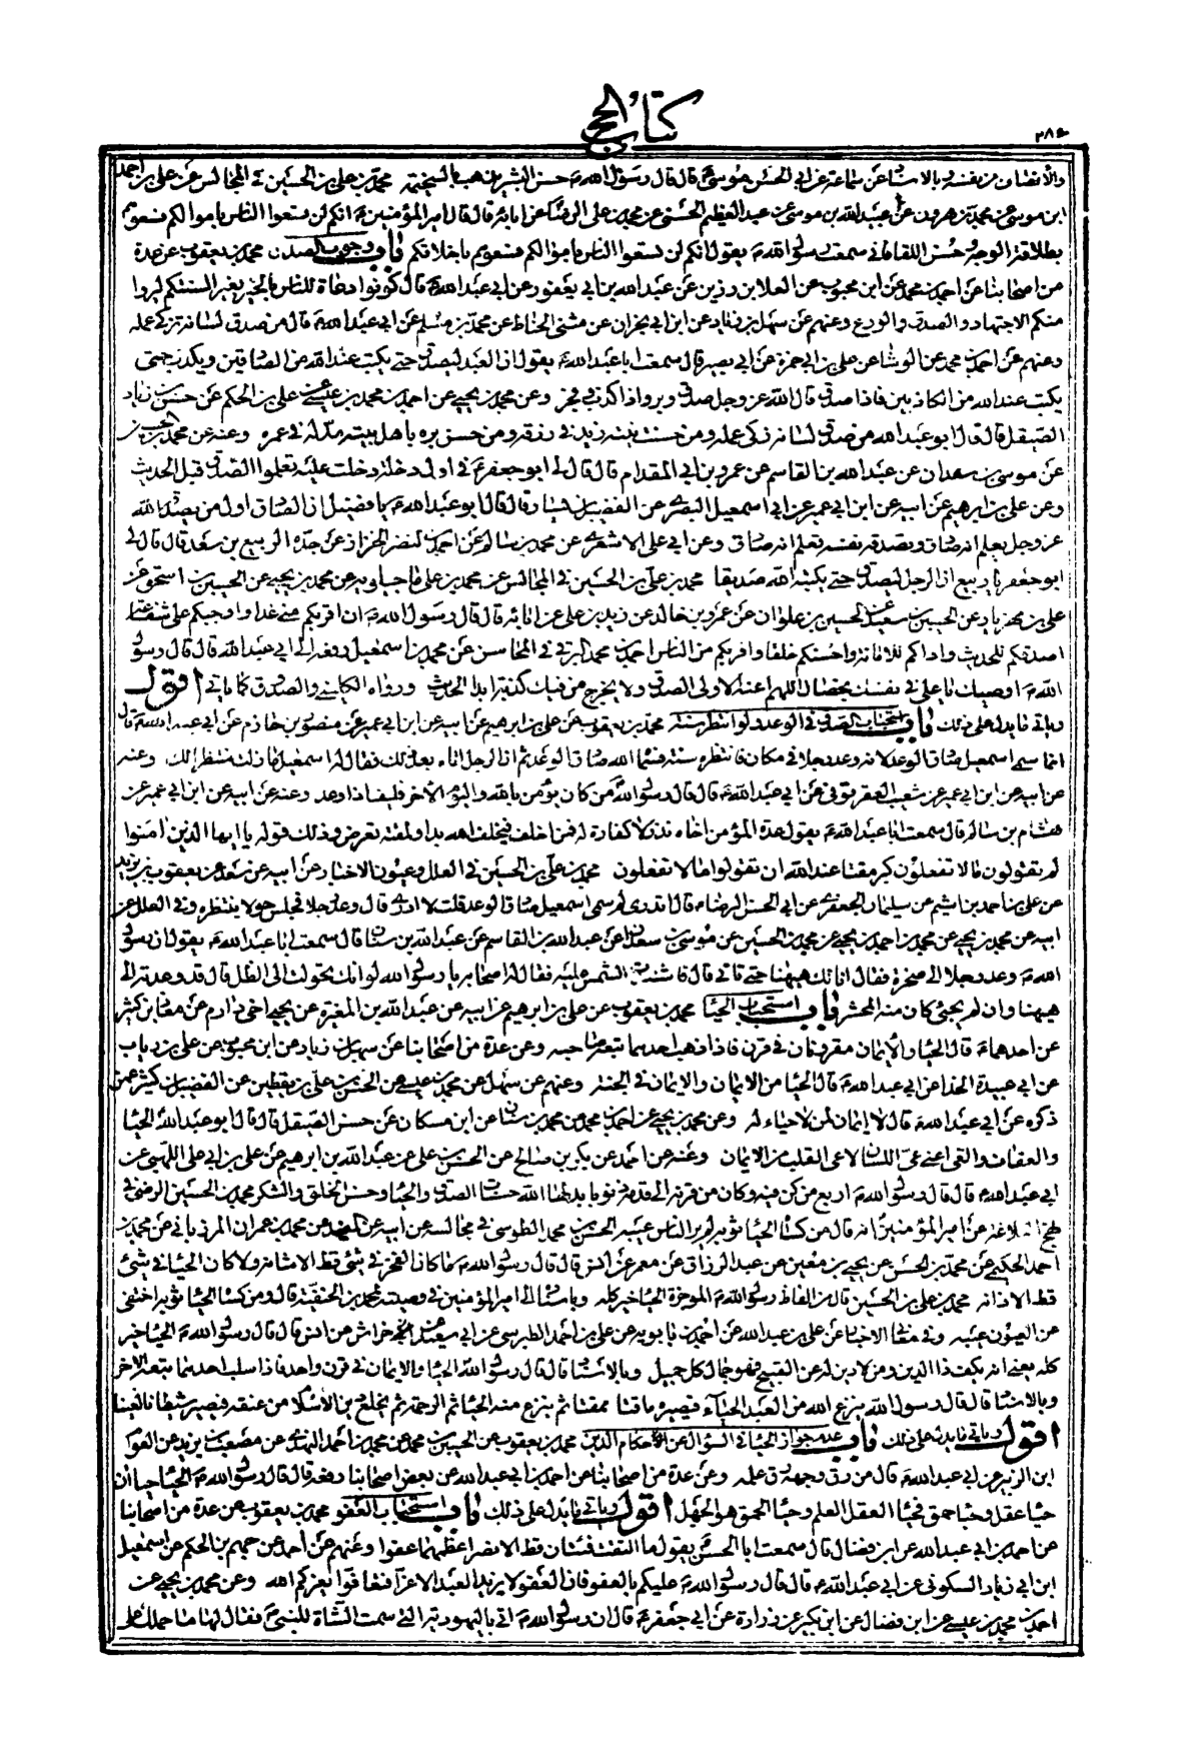 كتاب الحج
والانصاف من نفسه وبالاسناد عن سماعة عن ابي الحسن موسى قال قال رسول الله حسن البشر يذهب بالسخيمة محمد بن علي بن الحسين في المجالس عن علي بن احمد
ابن موسى عن محمد بن هرون عن عبيد الله بن موسى عن عبد العظيم الحسني عن محمد بن علي الرضا عن ابائه قال قال امير المؤمنين انكم لن تسعوا الناس باموالكم فسعوهم
بطلاقة الوجه وحسن اللقاء فاني سمعت رسول الله يقول انكم لن تسعوا الناس باموالكم فسعوهم باخلاقكم باب وجوب الصدق محمد بن يعقوب عن عدة
من اصحابنا عن احمد بن محمد عن ابن محبوب عن العلا بن رزين عن عبد الله بن ابي يعفور عن ابي عبد الله قال كونوا دعاة للناس بالخير بغير السنتكم ليروا
منكم الاجتهاد والصدق والورع وعنهم عن سهل بن زياد عن ابن ابي نجران عن مثنى الحناط عن محمد بن مسلم عن ابي عبد الله قال من صدق لسانه زكى عمله
وعنهم عن احمد بن محمد عن الوشا عن علي بن ابي حمزة عن ابي بصير قال سمعت ابا عبد الله يقول ان العبد ليصدق حتى يكتب عند الله من الصادقين ويكذب حتى
يكتب عند الله من الكاذبين فاذا صدق قال الله عز وجل صدق وبر واذا كذب قال الله عز وجل كذب وفجر وعن محمد بن يحيى عن احمد بن محمد بن عيسى عن علي بن الحكم عن حسن بن زياد
الصيقل قال قال ابو عبد الله من صدق لسانه زكى عمله ومن حسنت نيته زيد في رزقه ومن حسن بره باهل بيته مد له في عمره وعنه عن محمد بن الحسين
عن موسى بن سعدان عن عبد الله بن القاسم عن عمرو بن ابي المقدام قال قال لي ابو جعفر في اول دخلة دخلت عليه تعلموا الصدق قبل الحديث
وعن علي بن ابراهيم عن ابيه عن ابن ابي عمير عن ابي اسمعيل البصري عن الفضيل بن يسار قال قال ابو عبد الله يا فضيل ان الصادق اول من يصدقه الله
عز وجل يعلم انه صادق وتصدقه نفسه تعلم انه صادق وعن ابي علي الاشعري عن محمد بن سالم عن احمد بن النضر الخزاز عن جده الربيع بن سعد قال قال لي
ابو جعفر يا ربيع ان الرجل ليصدق حتى يكتبه الله صديقا محمد بن علي بن الحسين في المجالس عن محمد بن علي ماجيلويه عن محمد بن يحيى عن الحسين بن اسحق عن
علي بن مهزيار عن الحسين بن سعيد عن الحسين بن علوان عن عمرو بن خالد عن زيد بن علي عن ابائه قال قال رسول الله ان اقربكم مني غدا واوجبكم علي شفاعة
اصدقكم للحديث واداكم للامانة واحسنكم خلقا واقربكم من الناس احمد بن محمد البرقي في المحاسن عن محمد بن اسمعيل رفعه الى ابي عبد الله قال قال رسول
الله اوصيك يا علي في نفسك بخصال اللهم اعنه الاولى الصدق ولا يخرج من فيك كذبة ابدا الحديث ورواه الكليني والصدوق كما ياتي اقول
وياتي ما يدل على ذلك باب استحباب الصدق في الوعد ولو انتظر سنة محمد بن يعقوب عن علي بن ابراهيم عن ابيه عن ابن ابي عمير عن منصور بن حازم عن ابي عبد الله قال
انما سمي اسمعيل صادق الوعد لانه وعد رجلا في مكان فانتظره سنة فسماه الله صادق الوعد ثم ان الرجل اتاه بعد ذلك فقال له اسمعيل ما زلت منتظرا لك وعنه
عن ابيه عن ابن ابي عمير عن شعيب العقرقوفي عن ابي عبد الله قال قال رسول الله من كان يؤمن بالله واليوم الاخر فليف اذا وعد وعنه عن ابيه عن ابن ابي عمير عن
هشام بن سالم قال سمعت ابا عبد الله يقول عدة المؤمن اخاه نذر لا كفارة له فمن اخلف فبخلف الله بدا ولمقته تعرض وذلك قوله يا ايها الذين امنوا
لم تقولون ما لا تفعلون كبر مقتا عند الله ان تقولوا ما لا تفعلون محمد بن علي بن الحسين في العلل وعيون الاخبار عن ابيه عن سعد عن يعقوب بن يزيد
عن علي بن احمد بن اشيم عن سليمان الجعفري عن ابي الحسن الرضا قال تدري لم سمي اسمعيل صادق الوعد قلت لا ادري قال وعد رجلا فجلس حولا ينتظره وفي العلل عن
ابيه عن محمد بن يحيى عن محمد بن احمد بن يحيى عن محمد بن الحسين عن موسى بن سعدان عن عبد الله بن القاسم عن عبد الله بن سنان قال سمعت ابا عبد الله يقول ان رسول
الله وعد رجلا الى صخرة فقال انا لك هيهنا حتى تاتي قال فاشتدت الشمس عليه فقال له اصحابه يا رسول الله لو انك تحولت الى الظل قال قد وعدته الى
هيهنا وان لم يجئ كان منه المحشر باب استحباب الحيا محمد بن يعقوب عن علي بن ابراهيم عن ابيه عن عبد الله بن المغيرة عن يحيى اخي دارم عن معاذ بن كثير
عن احدهما قال الحيا والايمان مقرونان في قرن فاذا ذهب احدهما تبعه صاحبه وعن عدة من اصحابنا عن سهل بن زياد عن ابن محبوب عن علي بن رياب
عن ابي عبيدة الحذا عن ابي عبد الله قال الحيا من الايمان والايمان في الجنة وعنهم عن سهل عن محمد بن عيسى عن الحسن بن علي بن يقطين عن الفضل بن كثير عمن
ذكره عن ابي عبد الله قال لا ايمان لمن لا حياء له وعن محمد بن يحيى عن احمد بن محمد عن محمد بن سنان عن ابن مسكان عن حسن الصيقل قال قال ابو عبد الله الحيا
والعفاف والعي اعني عي اللسان لا عي القلب من الايمان وعنه عن احمد عن بكر بن صالح عن الحسن بن علي عن عبد الله بن ابراهيم عن علي بن ابي علي اللهبي عن
ابي عبد الله قال قال رسول الله اربع من كن فيه وكان من قرنه الى قدمه ذنوبا بدلها الله حسنات الصدق والحيا وحسن الخلق والشكر محمد بن الحسين الرضي في
نهج البلاغة عن امير المؤمنين انه قال من كساه الحيا ثوبه لم ير الناس عيبه الحسن بن محمد الطوسي في مجالسه عن ابيه عن المفيد عن محمد بن عمران المرزباني عن محمد بن
احمد الحكيمي عن محمد بن اسحق عن يحيى بن معين عن عبد الرزاق عن معمر عن انس قال قال رسول الله ما كان الفحش في شئ قط الا شانه ولا كان الحيا في شئ
قط الا زانه محمد بن علي بن الحسين قال من الفاظ رسول الله الموجزة الحيا خير كله وباسناده الى امير المؤمنين في وصيته لمحمد بن الحنفية قال ومن كساه الحيا ثوبه اختفى
عن العيون عيبه وفي معاني الاخبار عن علي بن عبد الله عن احمد بن بابويه عن علي بن احمد الطبرسي عن ابي سعيد عن خراش عن انس قال قال رسول الله الحيا خير
كله يعني انه يكف ذا الدين ومن لا دين له عن القبيح فهو جماع كل جميل وبالاسناد قال قال رسول الله الحيا والايمان في قرن واحد فاذا سلب احدهما تبعه الاخر
وبالاسناد قال قال رسول الله ينزع الله من العبد الحياء فيصيره ماقتا ممقتا ثم ينزع منه الحيا ثم الرحمة ثم يخلع دين الاسلام من عنقه فيصير شيطانا لعينا
اقول وياتي ما يدل على ذلك باب عدم جواز الحيا في السؤال عن احكام الدين محمد بن يعقوب عن الحسين بن محمد عن محمد بن احمد النهدي عن مصعب بن يزيد عن العوام
ابن الزبير عن ابي عبد الله قال من رق وجهه رق علمه وعن عدة من اصحابنا عن احمد بن ابي عبد الله عن بعض اصحابنا رفعه قال قال رسول الله الحيا حياان
حيا عقل وحيا حمق فحيا العقل العلم وحيا الحمق هو الجهل اقول وياتي ما يدل على ذلك باب استحباب العفو محمد بن يعقوب عن عدة من اصحابنا
عن احمد بن ابي عبد الله عن ابن فضال قال سمعت ابا الحسن يقول ما التقت فئتان قط الا نصر اعظمهما عفوا وعنهم عن احمد عن جهم بن الحكم عن اسمعيل
ابن ابي زياد السكوني عن ابي عبد الله قال قال رسول الله عليكم بالعفو فان العفو لا يزيد العبد الا عزا فتعافوا يعزكم الله وعن محمد بن يحيى عن
احمد بن محمد بن عيسى عن ابن فضال عن ابن بكير عن زرارة عن ابي جعفر قال ان رسول الله اتي باليهودية التي سمت الشاة للنبي فقال لها ما حملك على